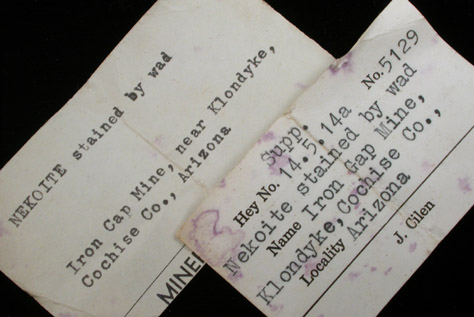 NEKOITE stained by wad
Iron Cap Mine, near Klondyke,
Cochise Co., Arizona
Supp.
Hey No. 14.5.14a No. 5129
Nekoite stained by wad
Name Iron Gap Mine,
Klondyke, Cochise Co.,
Locality Arizona
J. Cilen